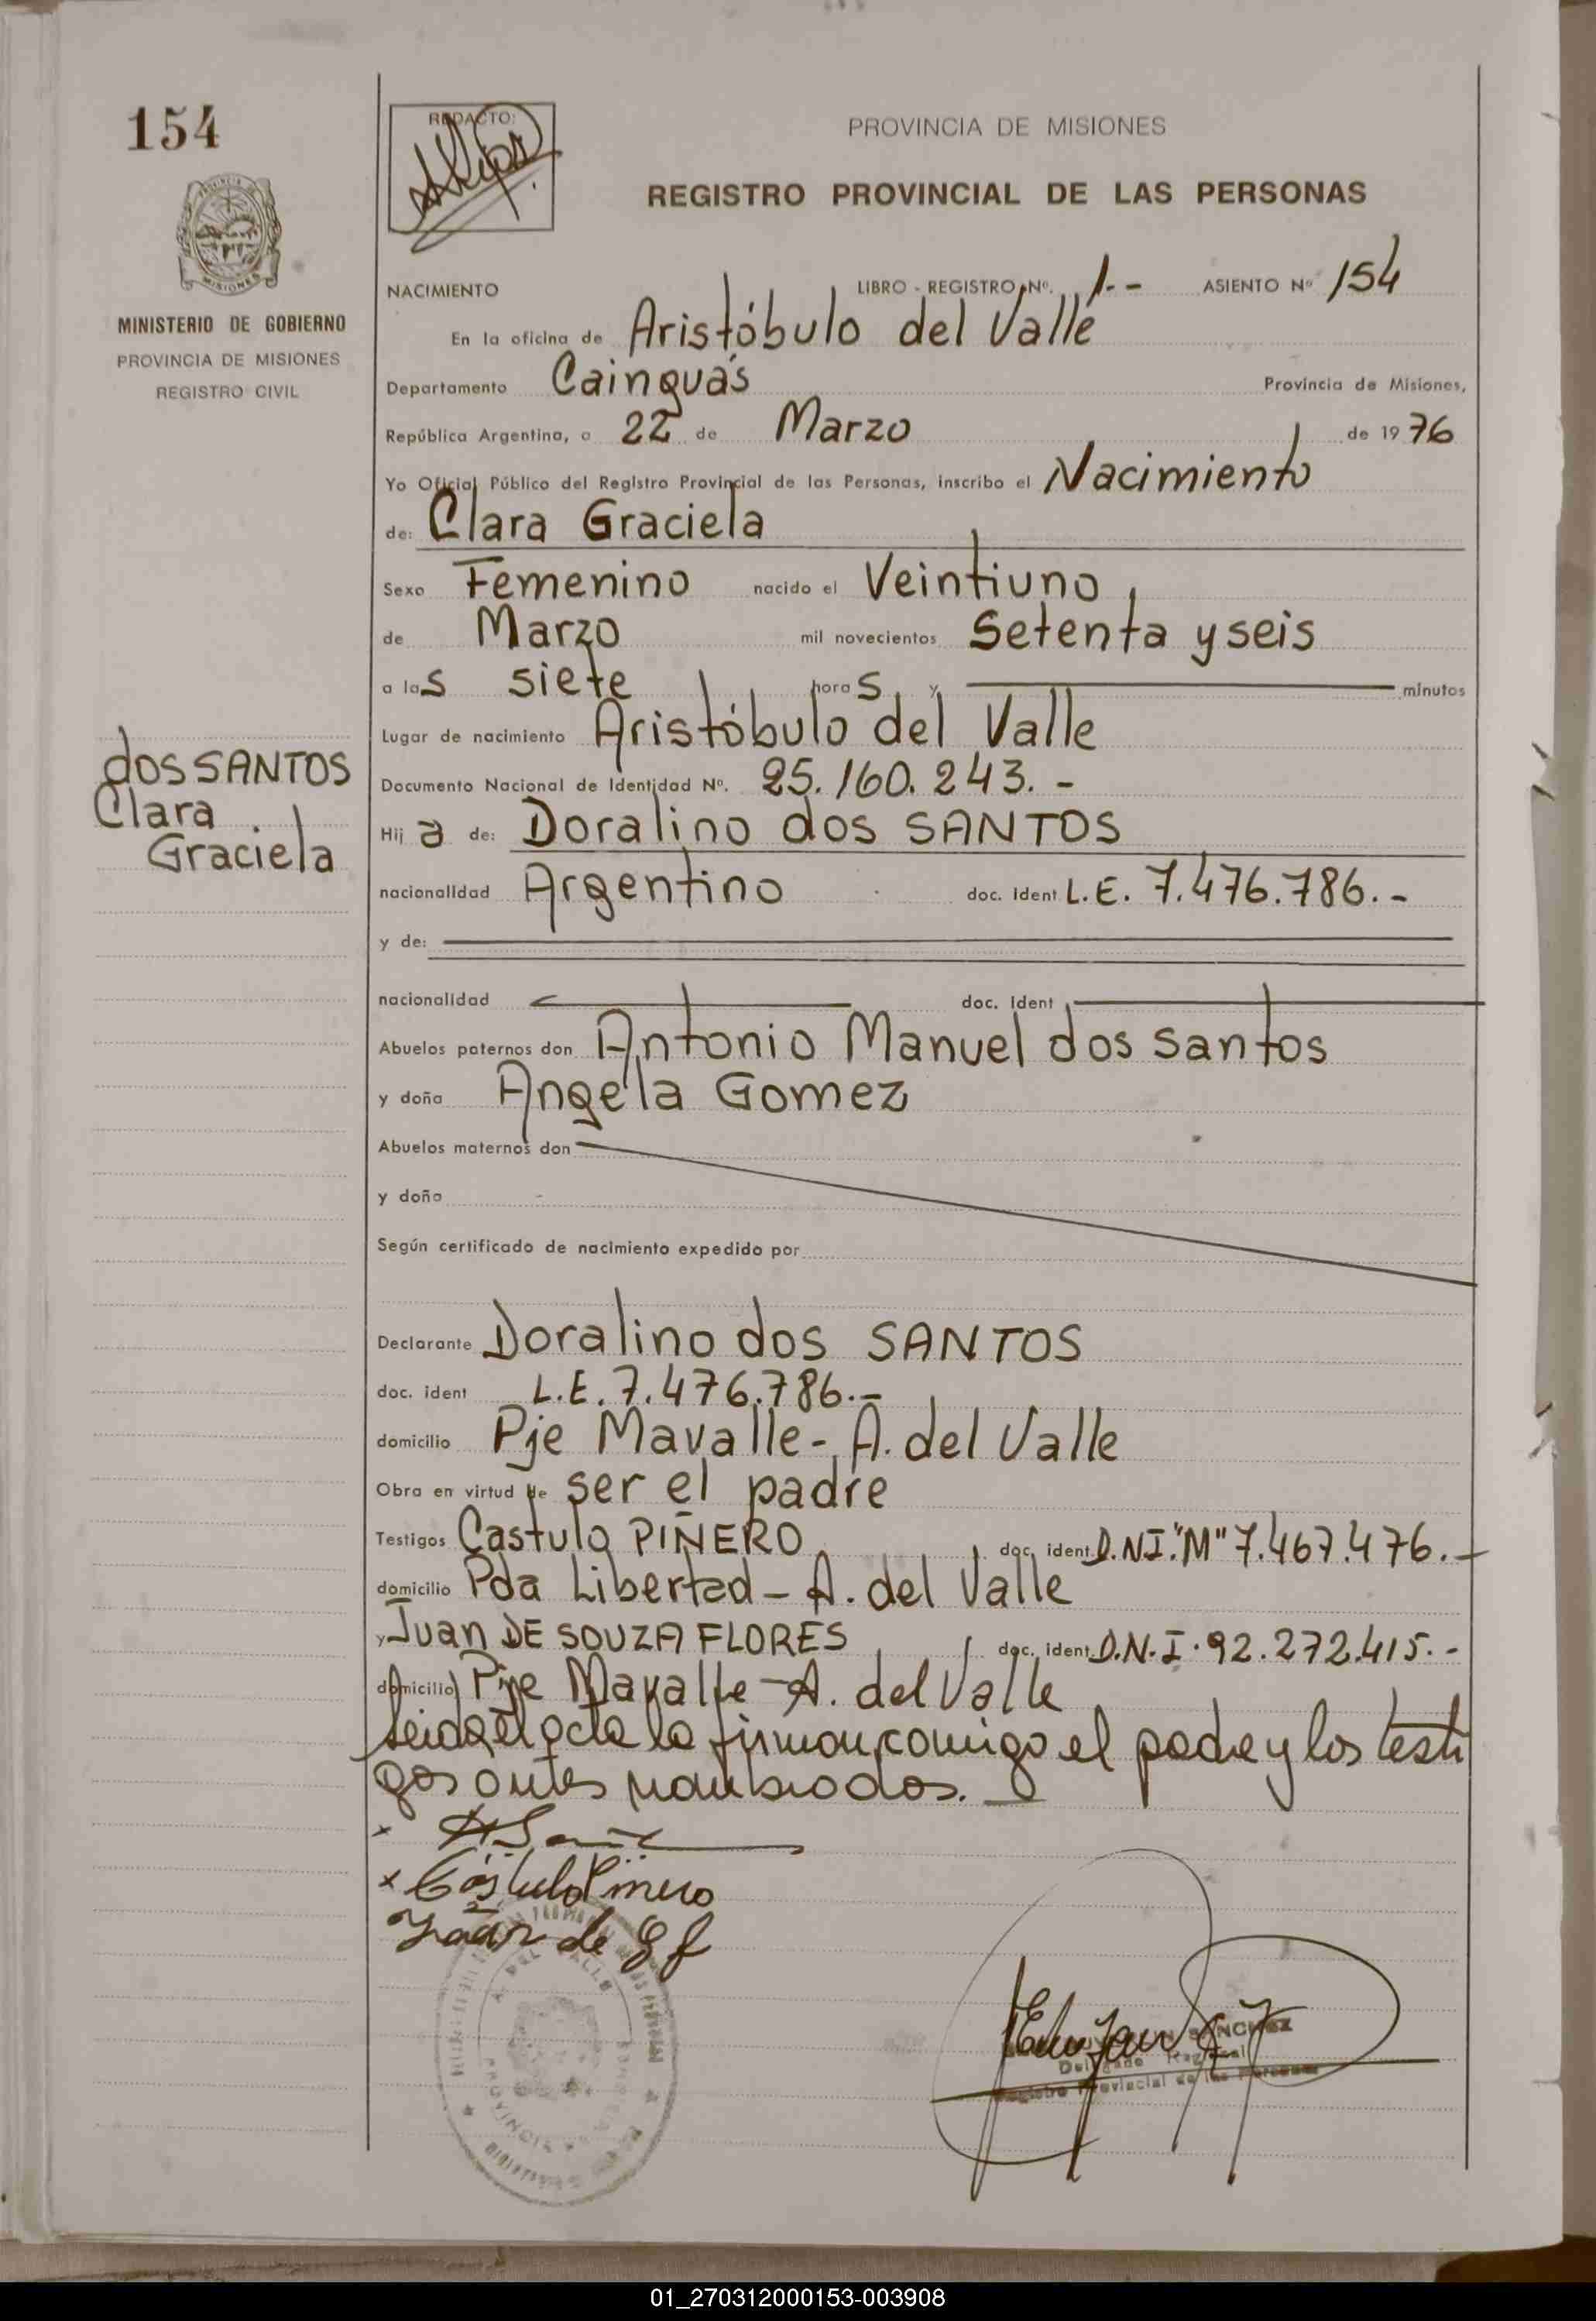 154
MINISTERIO DE GOBIERNO
PROVINCIA DE MISIONES
REGISTRO CIVIL
dos SANTOS
Clara
Graciela
REDACTO:
PROVINCIA DE MISIONES
REGISTRO PROVINCIAL DE LAS PERSONAS
NACIMIENTO LIBRO - REGISTRO Nº. 1.- ASIENTO Nº 154
En la oficina de Aristóbulo del Valle
Departamento Cainguás Provincia de Misiones,
República Argentina, a 22 de Marzo de 1976
Yo Oficial Público del Registro Provincial de las Personas, inscribo el Nacimiento
de: Clara Graciela
Sexo Femenino nacido el Veintiuno
de Marzo mil novecientos Setenta y seis
a las siete horas y minutos
Lugar de nacimiento Aristóbulo del Valle
Documento Nacional de Identidad Nº. 25.160.243.-
Hija de: Doralino dos SANTOS
nacionalidad Argentino doc. ident L.E. 7.476.786.-
y de:
nacionalidad doc. ident
Abuelos paternos don Antonio Manuel dos santos
y doña Angela Gomez
Abuelos maternos don
y doña
Según certificado de nacimiento expedido por
Declarante Doralino dos SANTOS
doc. ident L.E. 7.476.786.-
domicilio Pje Mavalle - A. del Valle
Obra en virtud de ser el padre
Testigos Castulo PIÑERO doc. ident D.N.I. "M" 7.467.476.-
domicilio Pda Libertad - A. del Valle
y Juan DE SOUZA FLORES doc. ident D.N.I. 92.272.415.-
domicilio Pje Mavalle - A. del Valle
leida el acta la firman comigo el padre y los testi
gos antes nombrados.
Cástulo Piñero
Juan de S f
SANCHEZ
Registro Provincial de las Personas
01_270312000153-003908